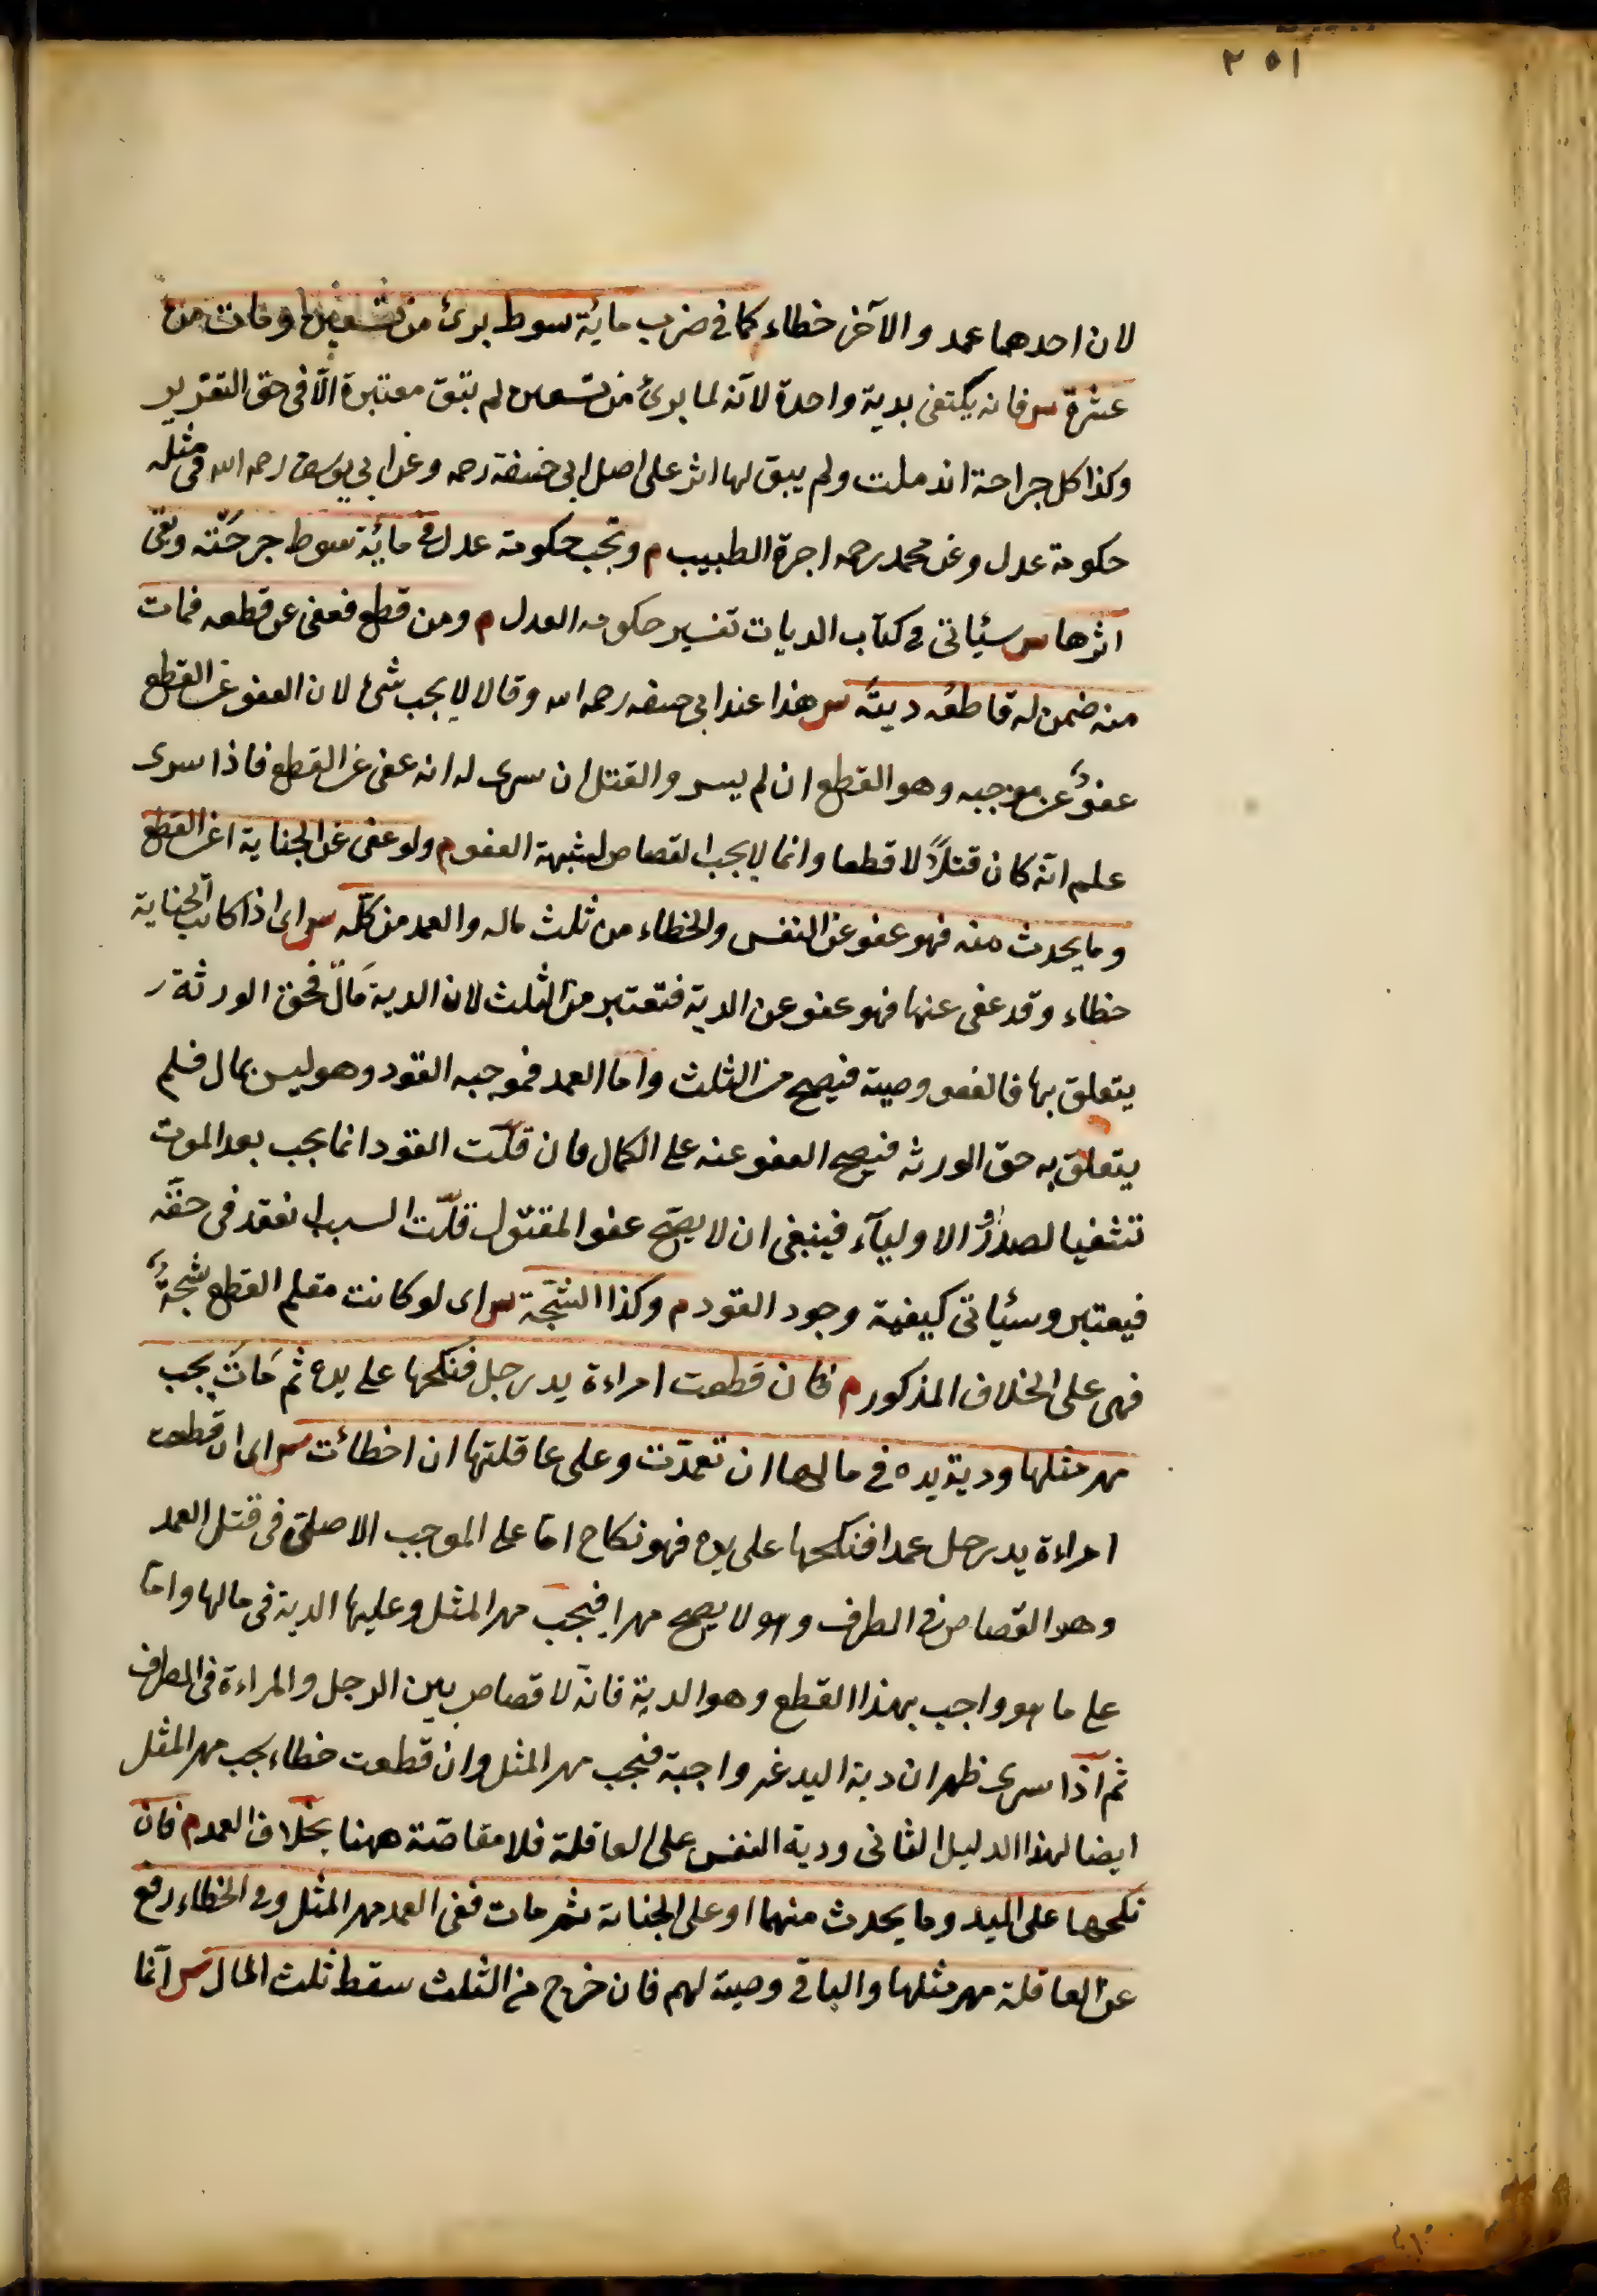 ٢٥١
لان احدهما عمد والآخر خطاء كما في ضرب مائة سوط برئ من تسعين ومات من
عشرة س فانه يكتفى بدية واحدة لانه لما برئ من تسعين لم تبق معتبرة الّا في حق التعزير
وكذا كل جراحة اندملت ولم يبق لها اثر على اصل ابى حنيفة رحمه وعن ابي يوسف رحمه الله في مثله
حكومة عدل وعن محمد رحمه اجرة الطبيب م وتجب حكومة عدل في مائة سوط جرحَتْه وبقى
اثرها س سيأتى في كتاب الديات تفسير حكومه العدل م ومن قطع فعفى عن قطعه فمات
منه ضمن له قاطعُه ديتَه س هذا عند ابى حنيفه رحمه الله وقالا لا يجب شئ لان العفو عن القطع
عفوٌ عن موجبه وهو القطع ان لم يسر والقتل ان سرى له انه عفى عن القطع فاذا سرى
علم انه كان قتلاً لا قطعا وانما لا يجب القصاص لشبهة العفو م ولو عفى عن الجناية او عن القطع
وما يحدث منه فهو عفو عن النفس والخطاء من ثلث ماله والعمد من كلّه س اى اذا كانت الجناية
خطاء وقد عفى عنها فهو عفو عن الدية فتعتبر من الثلث لان الدية مَالٌ فحق الورثة
يتعلق بها فالعفو وصية فيصح من الثلث واما العمد فموجبه القود وهو ليس بمال فلم
يتعلق به حق الورثه فيصح العفو عنه على الكمال فان قلت القود انما يجب بعد الموت
تشفيا لصدورُ الاولياء فينبغى ان لا يصح عفو المقتول قلت السبب انعقد فى حقه
فيعتبر وسيأتى كيفية وجود القود م وكذا الشجّة س اى لو كانت مقام القطع شجةٌ
فهى على الخلاف المذكور م فان قطعت امراءة يد رجل فنكحها على يده ثم مَات يجب
مهر مثلها ودية يده في مالها ان تعمدّت وعلى عاقلتها ان اخطائت س اى ان قطعت
امراءة يد رجل عمدا فنكحها على يده فهو نكاح امّا على الموجب الاصلىّ فى قتل العمد
وهو القصاص في الطرف وهو لا يصح مهرا فيجب مهر المثل وعليها الدية فى مالها وامّا
على ما هو واجب بهذا القطع وهو الدية فانّه لا قصاص بين الرجل والمراءة فى الطرف
ثم اذا سرى ظهر ان دية اليد غير واجبة فيجب مهر المثل وان قطعت خطاء يجب مهر المثل
ايضا لهذا الدليل الثانى ودية النفس على العاقلة فلا مقاصّة ههنا بخلاف العمد م فان
نكحها على اليد وما يحدث منهما او على الجناية ثم مات ففى العمد مهر المثل وفى الخطاء رفع
عن العاقلة مهر مثلها والباقى وصية لهم فان خرج من الثلث سقط ثلث المال س انما